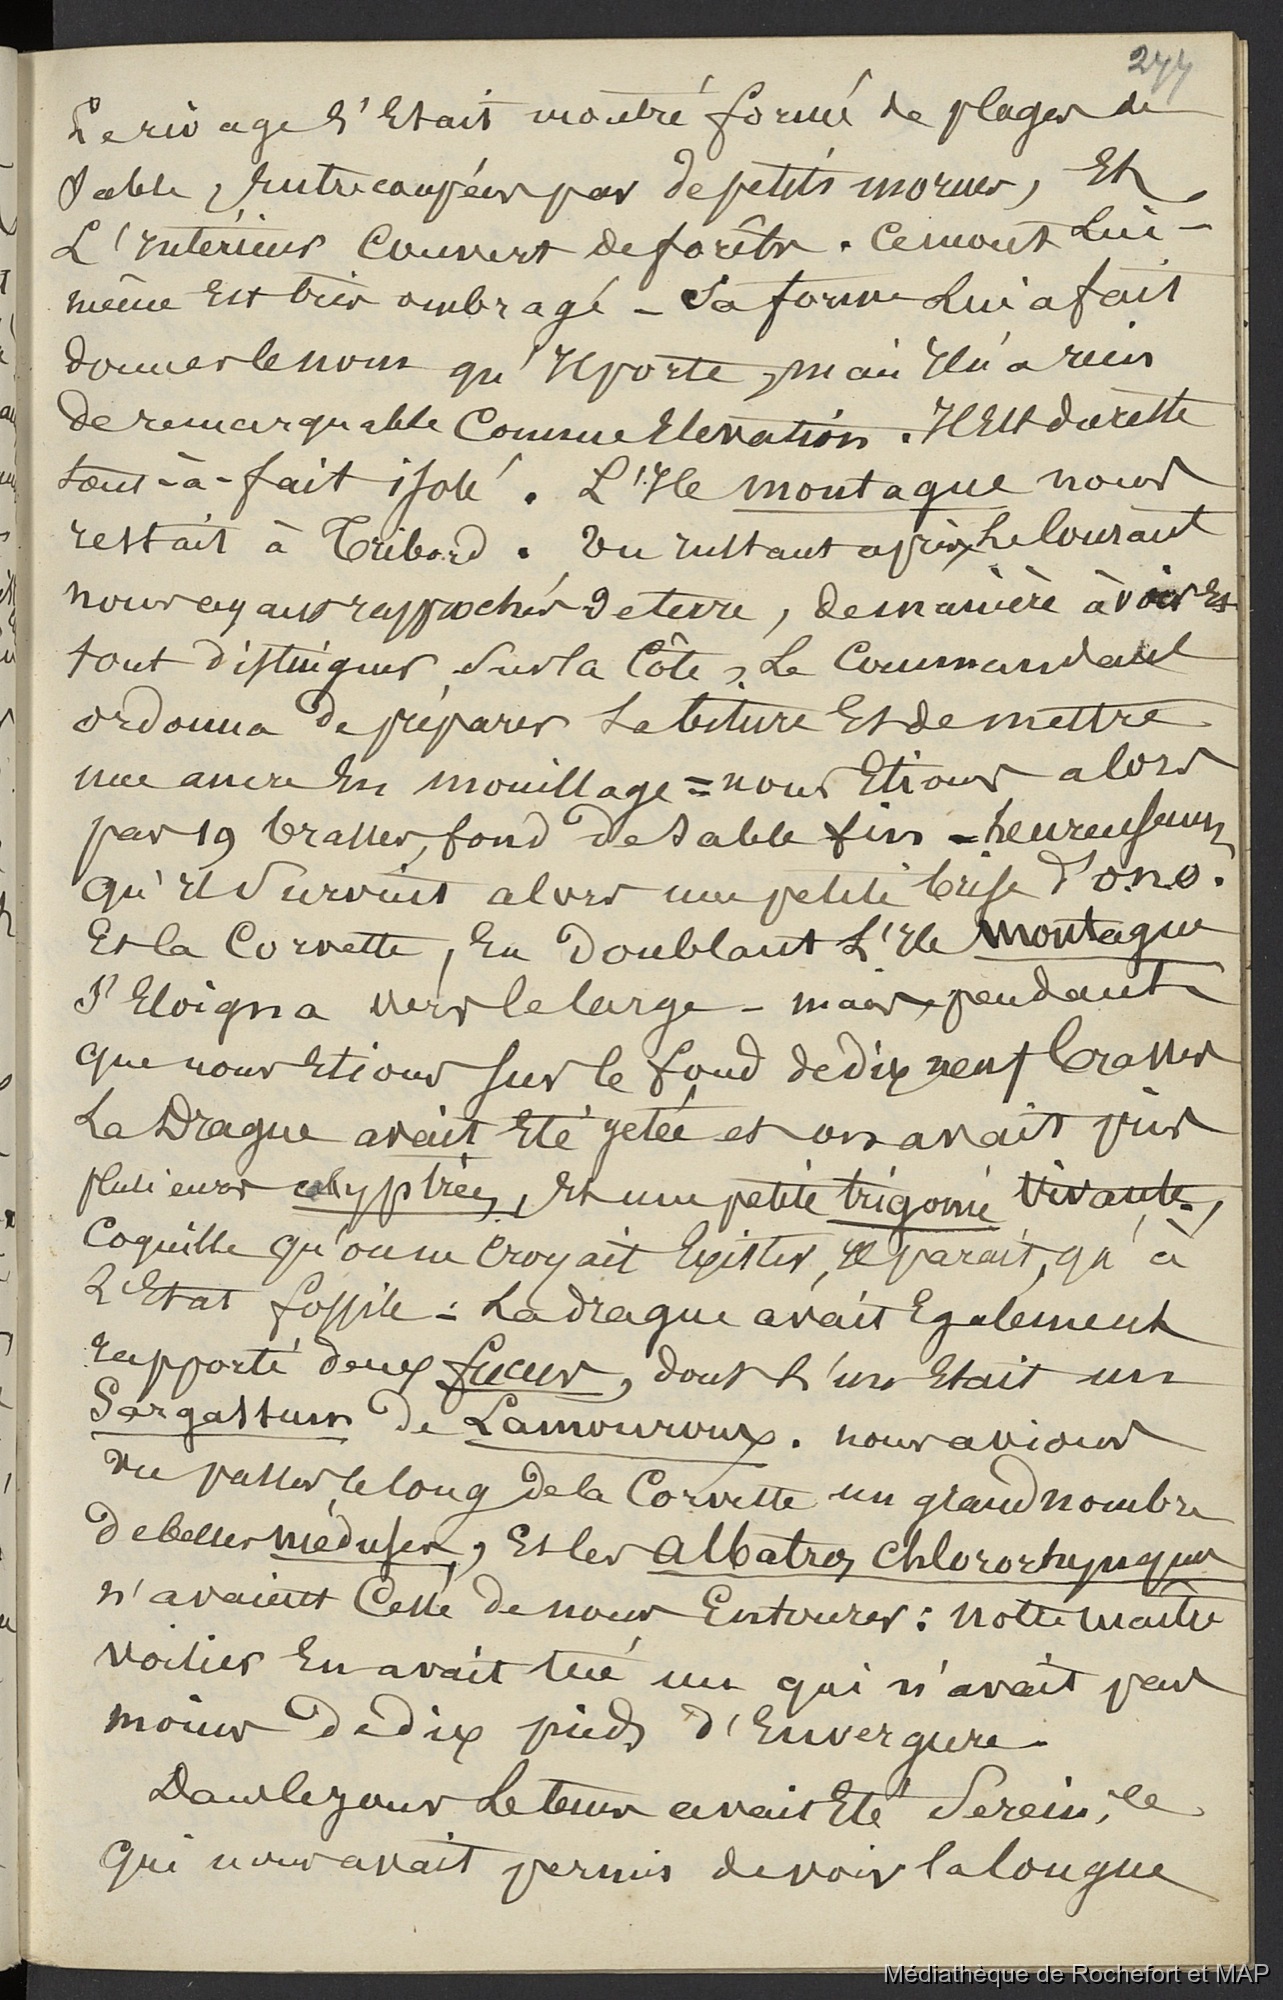 277
Le rivage s'Etait montré formé de plages de
sable, Entrecoupées par de petits mornes, Et
L'Intérieur Couvert de forêts. Ce mont Lui-
même Est très ombragé - Sa forme Lui a fait
donner le nom qu'Il porte, mais Il n'a rien
de remarquable Comme Elevation. Il Est du reste
tout-à-fait isolé. L'Ile montague nous
restait à Tribord. Un Instant après Le Courant
nous ayant rapprochés de terre, de manière à voir Et
tout distinguer sur la Côte, Le Commandant
ordonna de préparer La biture Et de mettre
une ancre En mouillage = nous Etions alors
par 19 brasses, fond de sable fin - heureusement
qu'Il survint alors une petite brise d'o.n.o.
Et la Corvette, En doublant L'Ile montague
s'Eloigna vers le large - mais, pendant
que nous Etions sur le fond de dix neuf brasses
La Drague avait Eté jetée et on avait pris
plusieurs calyptrées, Et une petite trigonie vivante,
Coquille qu'on ne Croyait Exister, Il parait, qu'à
L'Etat fossile = La drague avait Egalement
rapporté deux fucus, dont L'un Etait un
Sargassum de Lamouroux. nous avions
vu passer le long de la Corvette un grand nombre
de belles méduses, Et les albatros chlororhynques
n'avaient Cessé de nous Entourer : notre maître
voilier En avait tué un qui n'avait pas
moins de dix pieds d'Envergure.
Dans le jour Le tems avait Eté Serein, Ce
qui nous avait permis de voir la longue
Médiathèque de Rochefort et MAP